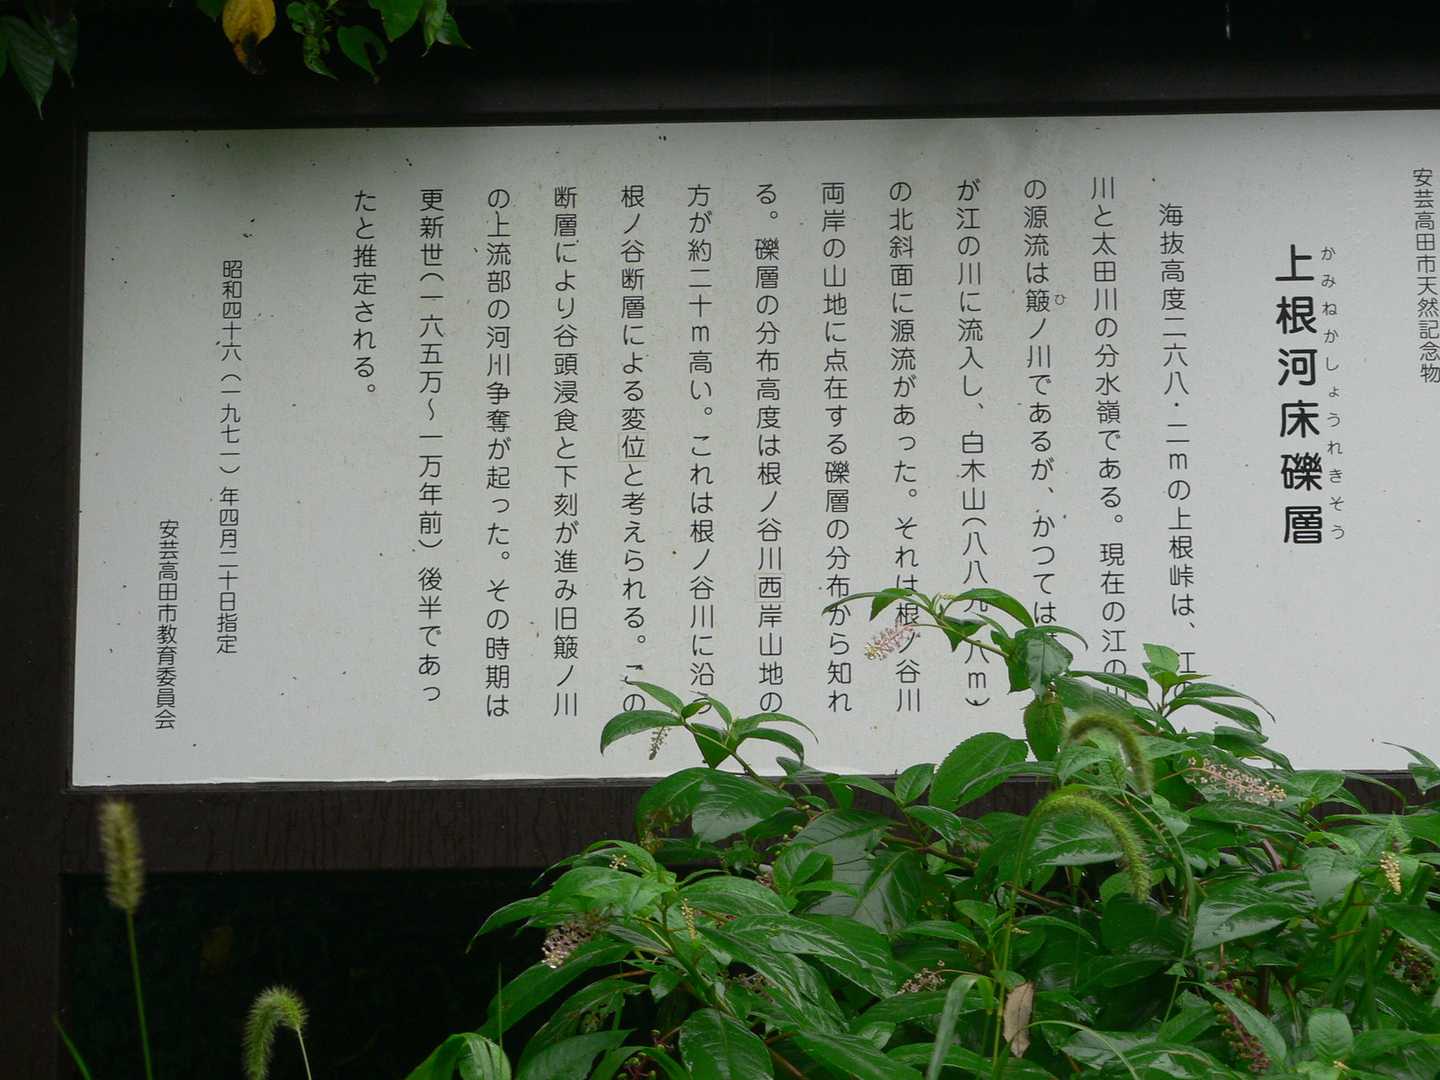 安芸高田市天然記念物
かみねかしょうれきそう
上根河床礫層
海抜高度二六八・二mの上根峠は、江の
川と太田川の分水嶺である。現在の江の川
ひ
の源流は簸ノ川であるが、かつては
が江の川に流入し、白木山(八八九・八m)
の北斜面に源流があった。それは根ノ谷川
両岸の山地に点在する礫層の分布から知れ
る。礫層の分布高度は根ノ谷川西岸山地の
方が約二十m高い。これは根ノ谷川に沿う
根ノ谷断層による変位と考えられる。この
断層により谷頭浸食と下刻が進み旧簸ノ川
の上流部の河川争奪が起った。その時期は
更新世(一六五万〜一万年前)後半であっ
たと推定される。
昭和四十六(一九七一)年四月二十日指定
安芸高田市教育委員会